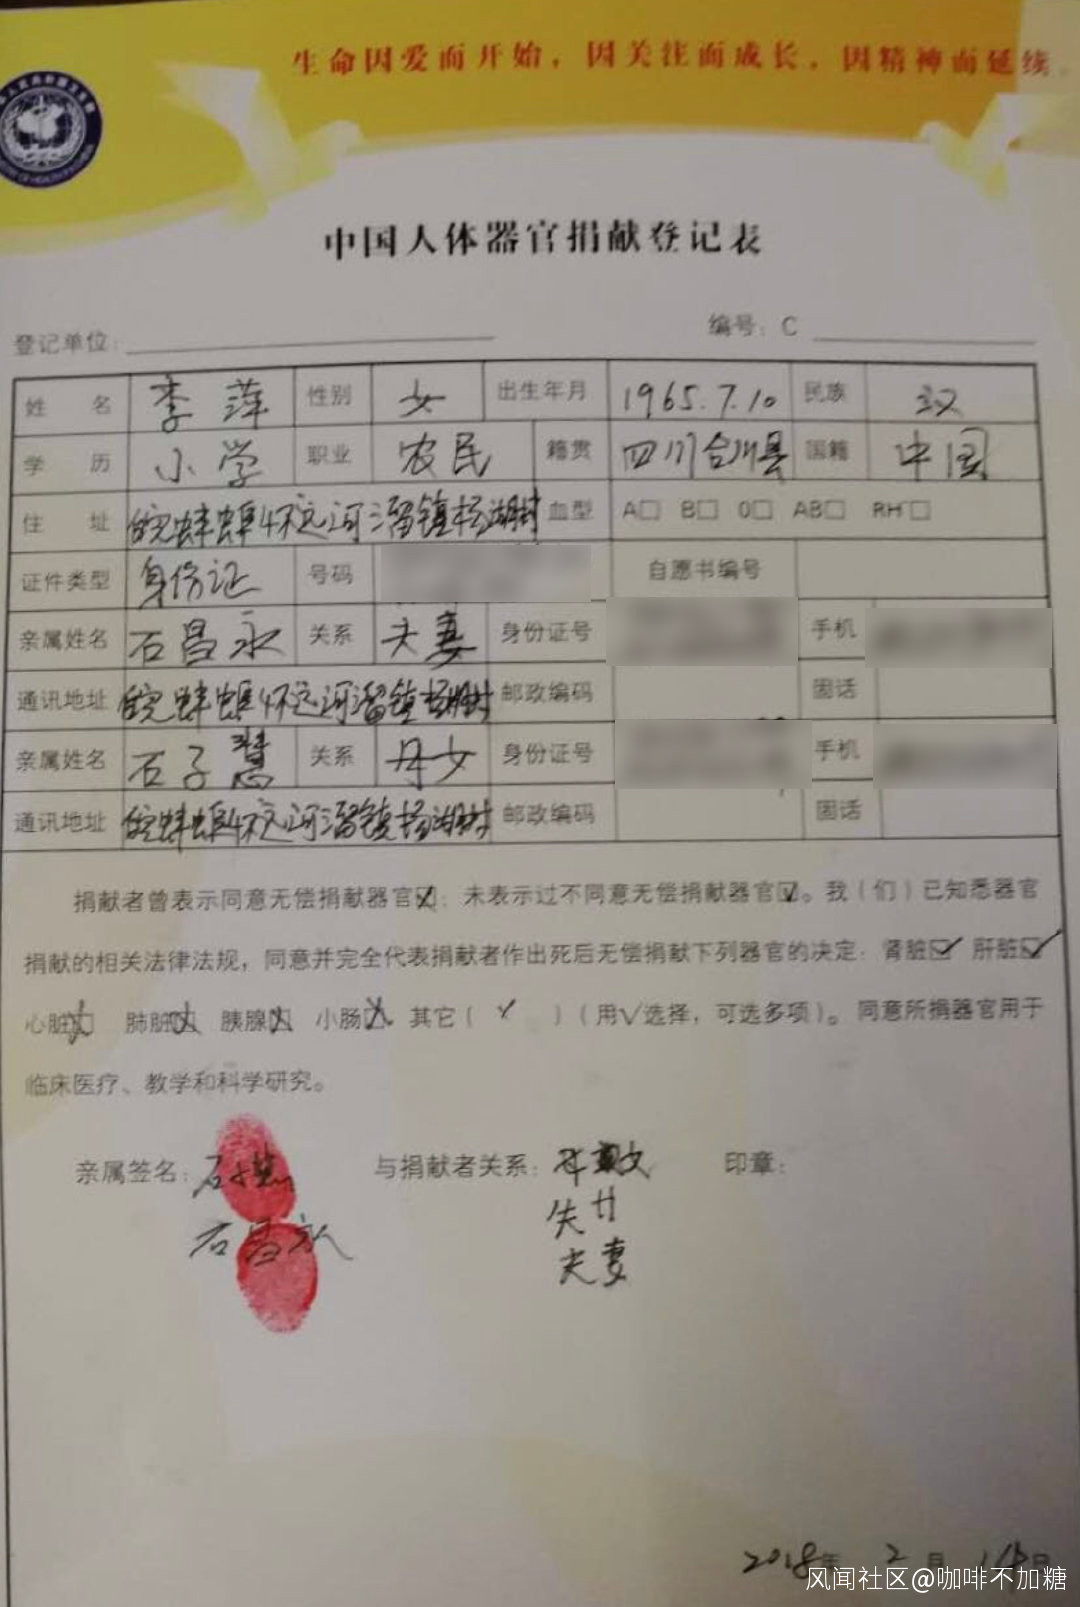 生命因爱而开始，因关注而成长，因精神而延续
中国人体器官捐献登记表
登记单位： 编号：C
姓 名 李萍 性别 女 出生年月 1965.7.10 民族 汉
学 历 小学 职业 农民 籍贯 四川合川县 国籍 中国
住 址 皖蚌埠怀远河溜镇杨湖村 血型 A□ B□ O□ AB□ RH□
证件类型 身份证 号码 自愿书编号
亲属姓名 石昌永 关系 夫妻 身份证号 手机
通讯地址 皖蚌埠怀远河溜镇杨湖村 邮政编码 固话
亲属姓名 石子慧 关系 母女 身份证号 手机
通讯地址 皖蚌埠怀远河溜镇杨湖村 邮政编码 固话
捐献者曾表示同意无偿捐献器官☒；未表示过不同意无偿捐献器官☑。我（们）已知悉器官
捐献的相关法律法规，同意并完全代表捐献者作出死后无偿捐献下列器官的决定：肾脏☑ 肝脏☑
心脏☒ 肺脏☒ 胰腺☒ 小肠☒ 其它（ × ）（用√选择，可选多项）。同意所捐器官用于
临床医疗、教学和科学研究。
亲属签名：石子慧 与捐献者关系： 印章：
石昌永
夫妻
2018年2月15日
风闻社区@咖啡不加糖